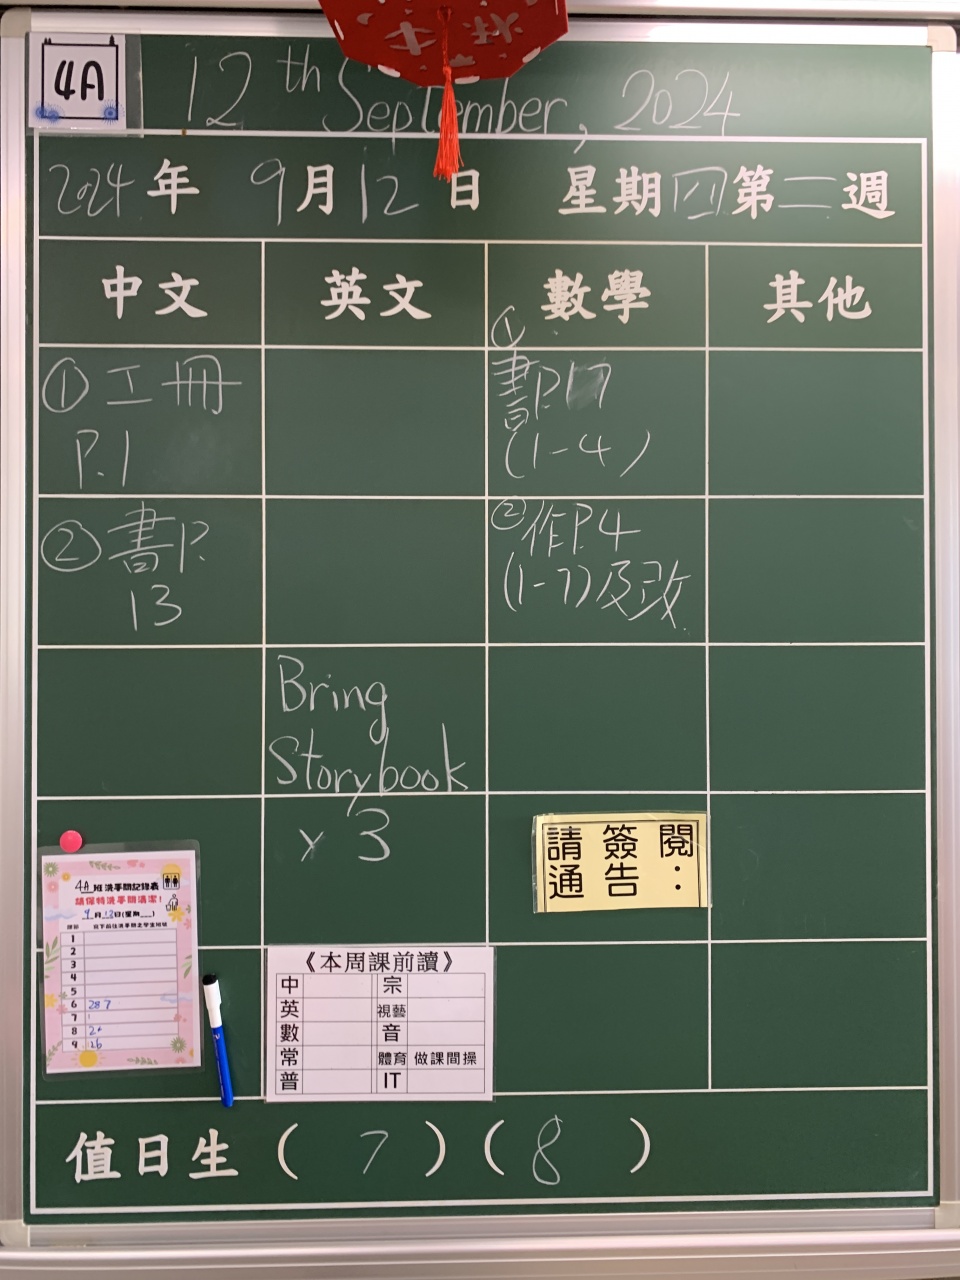 4A
12th September, 2024
2024年 9月12日 星期四第二週
中文 英文 數學 其他
①工冊
P.1
②書P.
13
Bring
Storybook
x 3
①
書P.17
(1-4)
②作P.4
(1-7)及改
請簽閱
通告：
4A班洗手間記錄表
請保持洗手間清潔！
9月12日(星期__)
1
2
3
4
5
6 28 7
7
8
9 26
《本周課前讀》
中 宗
英 視藝
數 音
常 體育 做課間操
普 IT
值日生 ( 7 ) ( 8 )